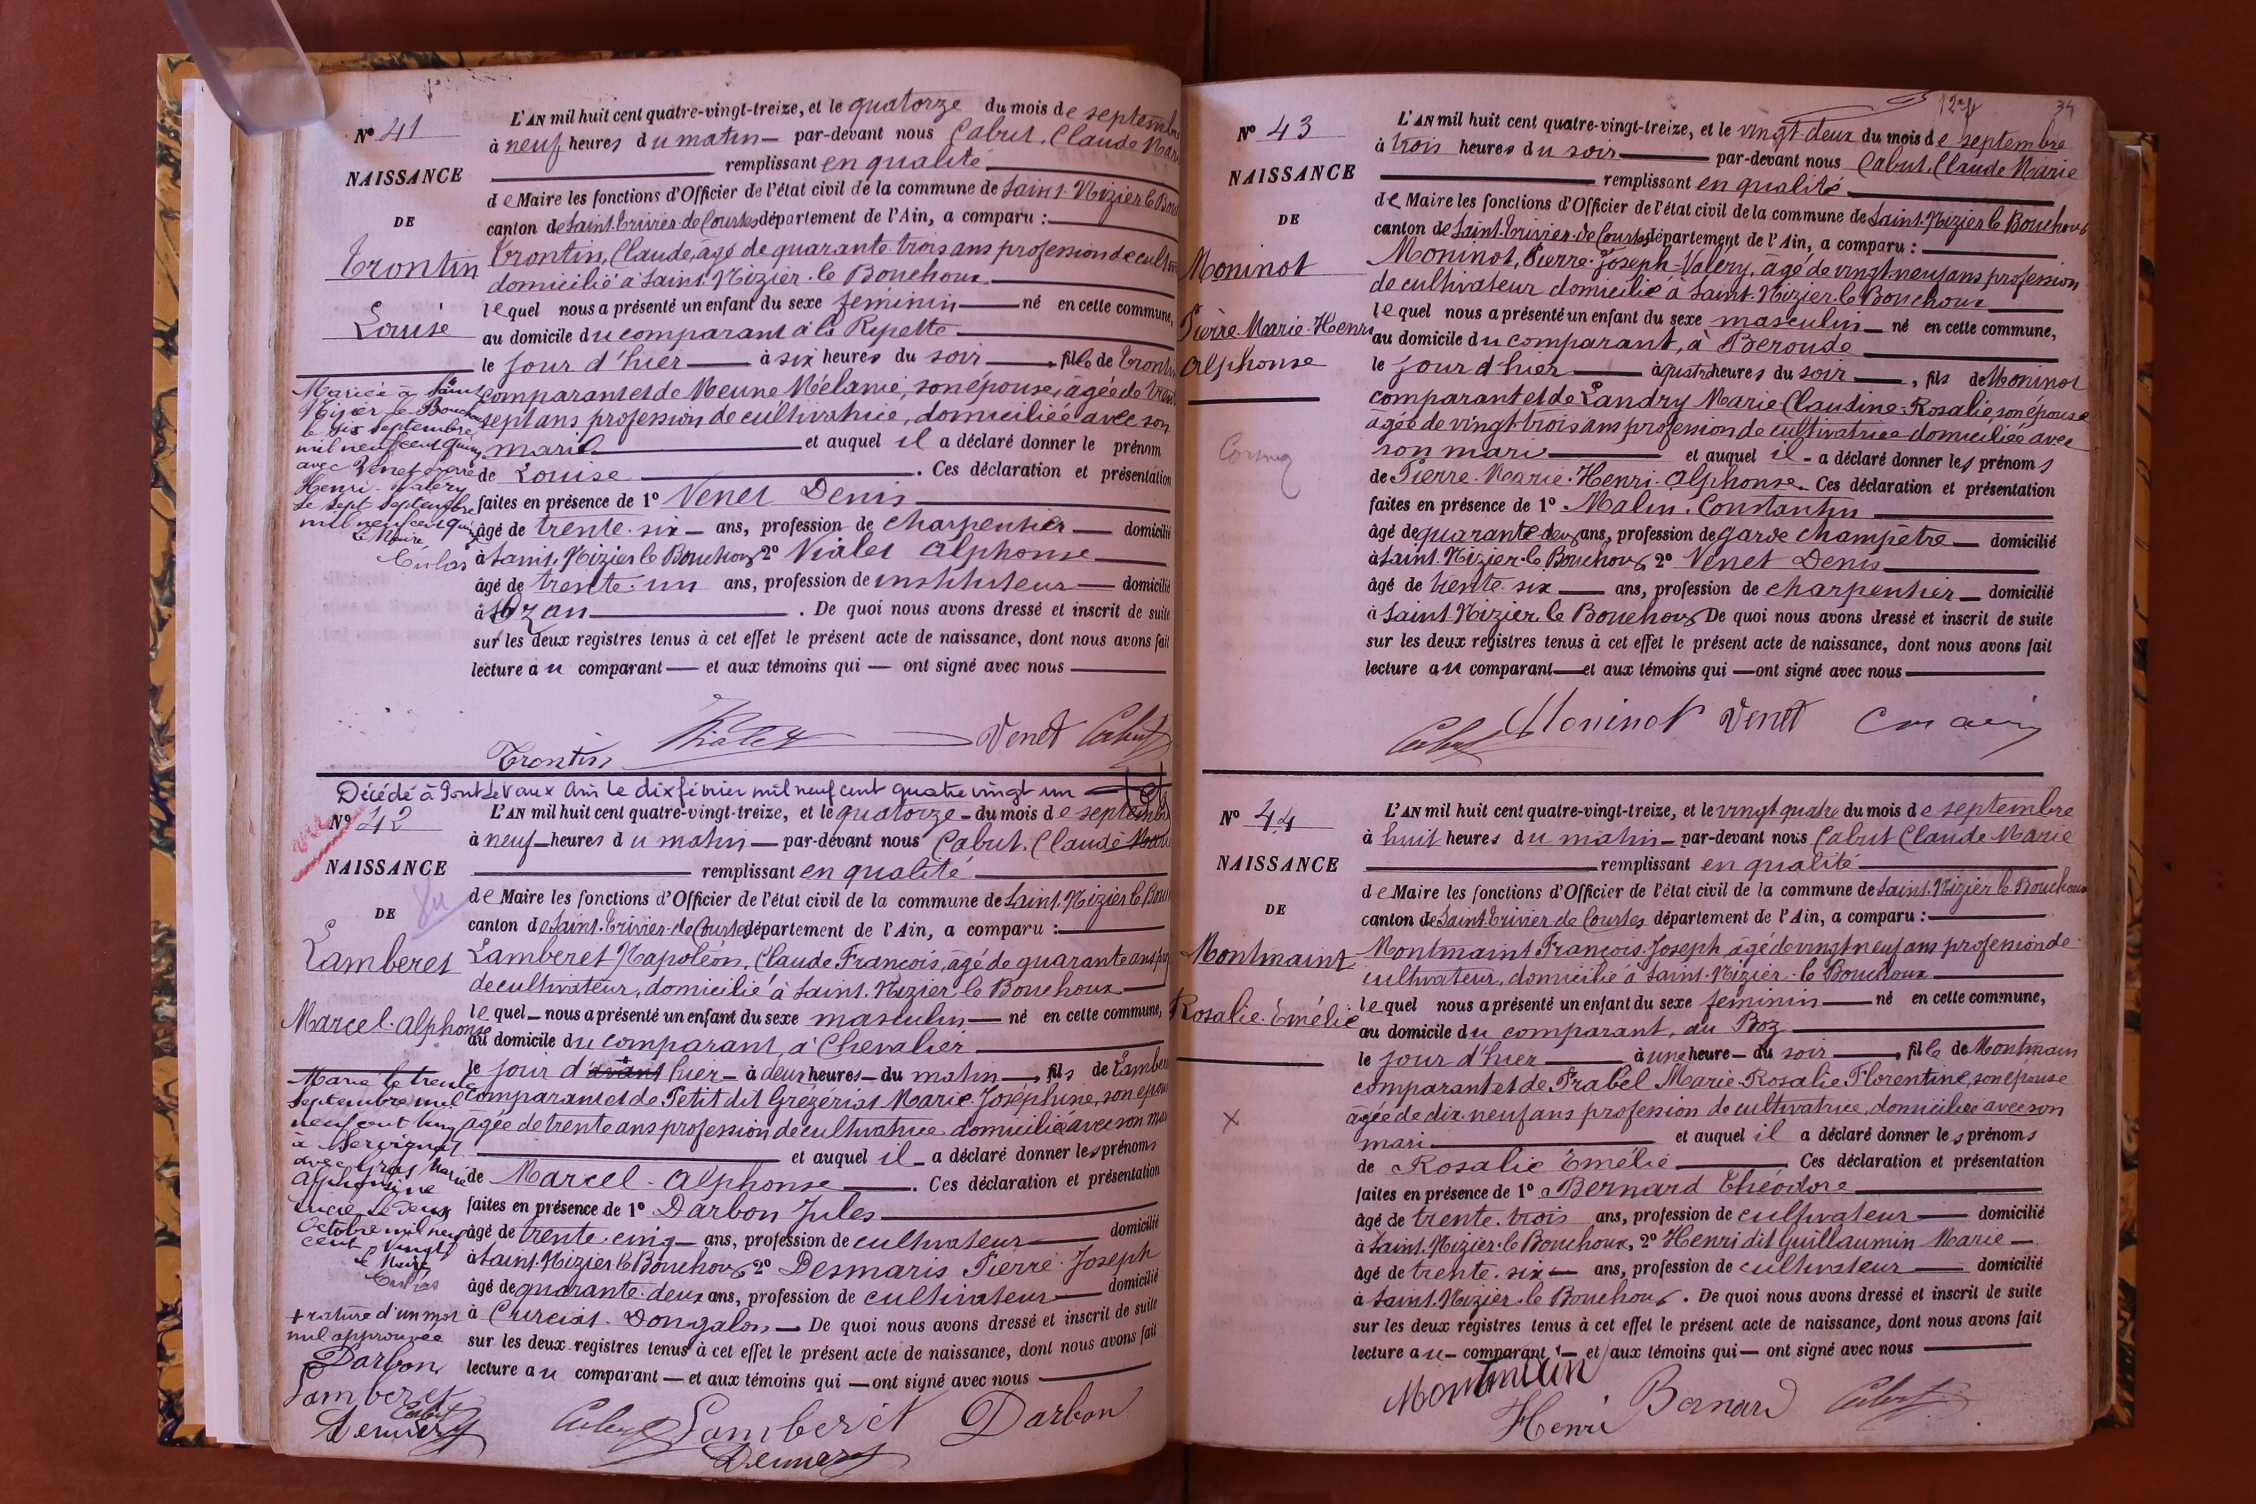 N° 41
NAISSANCE
DE
Trontin
Louise
Mariée à Saint
Nizier le Bouchoux
le six septembre
mil neuf cent quinze
avec Venet Pierre
Henri Valéry
le sept septembre
mil neuf cent quinze
Le Maire
L'AN mil huit cent quatre-vingt-treize, et le quatorze du mois de septembre
à neuf heures du matin par-devant nous Cabut, Claude Marie
remplissant en qualité
de Maire les fonctions d'Officier de l'état civil de la commune de Saint-Nizier le Bouchoux
canton de Saint-Trivier-de-Courtes département de l'Ain, a comparu :
Trontin, Claude, âgé de quarante trois ans profession de cultivateur
domicilié à Saint-Nizier-le Bouchoux
lequel nous a présenté un enfant du sexe féminin né en cette commune,
au domicile du comparant à la Ripette
le jour d'hier à six heures du soir, fille de Trontin
comparant et de Meune Mélanie, son épouse, âgée de trente
sept ans profession de cultivatrice, domiciliée avec son
mari et auquel il a déclaré donner le prénom
de Louise. Ces déclaration et présentation
faites en présence de 1° Venet Denis
âgé de trente-six ans, profession de charpentier domicilié
à Saint-Nizier le Bouchoux 2° Vialet Alphonse
âgé de trente-un ans, profession de instituteur domicilié
à Ozan. De quoi nous avons dressé et inscrit de suite
sur les deux registres tenus à cet effet le présent acte de naissance, dont nous avons fait
lecture au comparant et aux témoins qui ont signé avec nous
Trontin Vialet Venet Cabut
Décédé à Pont de Vaux Ain le dix février mil neuf cent quatre vingt un
N° 42
NAISSANCE
DE
Lamberet
Marcel-Alphonse
Marié le trente
septembre mil
neuf cent vingt
à Servignat
avec Gras Marie
Alphonsine
Lucie le deux
octobre mil neuf
cent vingt
le Maire
+ rature d'un mot
nul approuvée
Darbon
Lamberet
Cabut
L'AN mil huit cent quatre-vingt-treize, et le quatorze du mois de septembre
à neuf heures du matin par-devant nous Cabut, Claude Marie
remplissant en qualité
de Maire les fonctions d'Officier de l'état civil de la commune de Saint-Nizier le Bouchoux
canton de Saint-Trivier-de-Courtes département de l'Ain, a comparu :
Lamberet Napoléon, Claude François, âgé de quarante ans prof
de cultivateur, domicilié à Saint-Nizier le Bouchoux
lequel nous a présenté un enfant du sexe masculin né en cette commune,
au domicile du comparant, à Chevalier
le jour d'avant hier à deux heures du matin, fils de Lamberet
comparant et de Petit dit Grézériat Marie Joséphine, son épouse
âgée de trente ans profession de cultivatrice domiciliée avec son mari
et auquel il a déclaré donner les prénoms
de Marcel-Alphonse. Ces déclaration et présentation
faites en présence de 1° Darbon Jules
âgé de trente-cinq ans, profession de cultivateur domicilié
à Saint-Nizier le Bouchoux 2° Desmaris Pierre Joseph
âgé de quarante-deux ans, profession de cultivateur domicilié
à Curciat-Dongalon De quoi nous avons dressé et inscrit de suite
sur les deux registres tenus à cet effet le présent acte de naissance, dont nous avons fait
lecture au comparant et aux témoins qui ont signé avec nous
Cabut Lamberet Darbon
N° 43
NAISSANCE
DE
Moninot
Pierre-Marie-Henri
Alphonse
L'AN mil huit cent quatre-vingt-treize, et le vingt-deux du mois de septembre
à trois heures du soir par-devant nous Cabut, Claude Marie
remplissant en qualité
de Maire les fonctions d'Officier de l'état civil de la commune de Saint-Nizier le Bouchoux
canton de Saint-Trivier-de-Courtes département de l'Ain, a comparu :
Moninot, Pierre-Joseph-Valery, âgé de vingt-neuf ans profession
de cultivateur domicilié à Saint-Nizier-le Bouchoux
lequel nous a présenté un enfant du sexe masculin né en cette commune,
au domicile du comparant, à Beroude
le jour d'hier à quatre heures du soir, fils de Moninot
comparant et de Landry Marie Claudine-Rosalie son épouse
âgée de vingt-trois ans profession de cultivatrice domiciliée avec
son mari et auquel il a déclaré donner les prénoms
de Pierre-Marie-Henri-Alphonse. Ces déclaration et présentation
faites en présence de 1° Malin Constantin
âgé de quarante-deux ans, profession de garde champêtre domicilié
à Saint-Nizier-le Bouchoux 2° Venet Denis
âgé de trente-six ans, profession de charpentier domicilié
à Saint-Nizier le Bouchoux De quoi nous avons dressé et inscrit de suite
sur les deux registres tenus à cet effet le présent acte de naissance, dont nous avons fait
lecture au comparant et aux témoins qui ont signé avec nous
Cabut Moninot Venet
N° 44
NAISSANCE
DE
Montmaint
Rosalie-Emélie
L'AN mil huit cent quatre-vingt-treize, et le vingt quatre du mois de septembre
à huit heures du matin par-devant nous Cabut Claude Marie
remplissant en qualité
de Maire les fonctions d'Officier de l'état civil de la commune de Saint-Nizier le Bouchoux
canton de Saint-Trivier de Courtes département de l'Ain, a comparu :
Montmaint François-Joseph âgé de vingt neuf ans profession de
cultivateur, domicilié à Saint-Nizier-le Bouchoux
lequel nous a présenté un enfant du sexe féminin né en cette commune,
au domicile du comparant, au Boz
le jour d'hier à une heure du soir, fille de Montmain
comparant et de Frabel Marie-Rosalie Florentine, son épouse
âgée de dix-neuf ans profession de cultivatrice, domiciliée avec son
mari et auquel il a déclaré donner les prénoms
de Rosalie Emélie Ces déclaration et présentation
faites en présence de 1° Bernard Théodore
âgé de trente-trois ans, profession de cultivateur domicilié
à Saint-Nizier-le Bouchoux, 2° Henri dit Guillaumin Marie
âgé de trente-six ans, profession de cultivateur domicilié
à Saint-Nizier-le Bouchoux. De quoi nous avons dressé et inscrit de suite
sur les deux registres tenus à cet effet le présent acte de naissance, dont nous avons fait
lecture au comparant et aux témoins qui ont signé avec nous
Montmain Henri Bernard Cabut